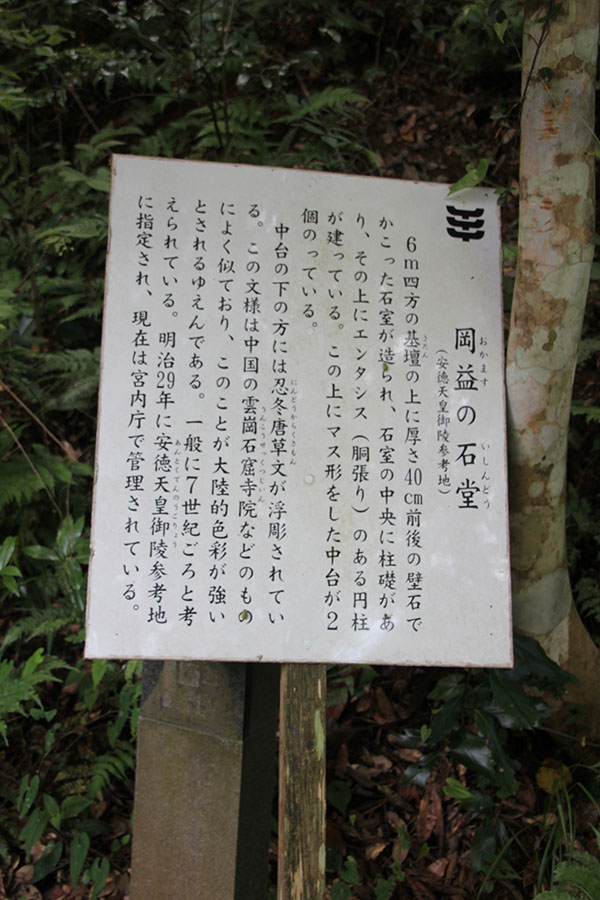 岡益の石堂
おかます いしんどう
（安徳天皇御陵参考地）
6m四方の基壇の上に厚さ40cm前後の壁石で
きだん
かこった石室が造られ、石室の中央に柱礎があ
り、その上にエンタシス（胴張り）のある円柱
が建っている。この上にマス形をした中台が2
個のっている。
中台の下の方には忍冬唐草文が浮彫されてい
にんどうからくさもん
る。この文様は中国の雲崗石窟寺院などのもの
うんこうせっくつじいん
によく似ており、このことが大陸的色彩が強い
とされるゆえんである。一般に7世紀ごろと考
えられている。明治29年に安徳天皇御陵参考地
あんとくてんのうごりょう
に指定され、現在は宮内庁で管理されている。